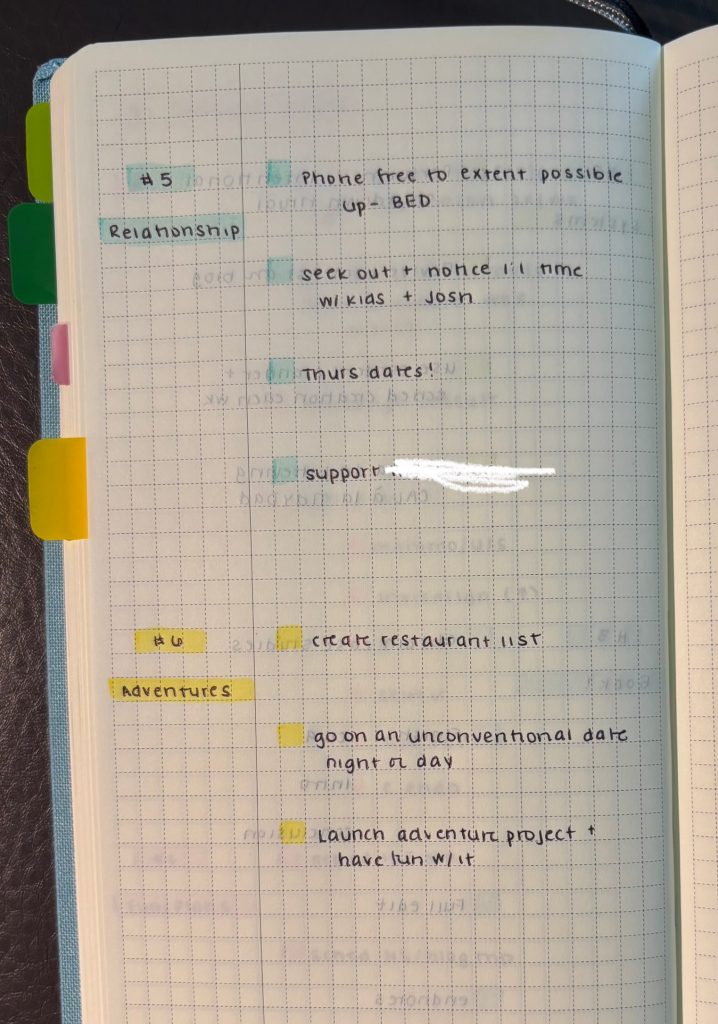 #5
Relationship
Phone free to extent possible
up-BED
seek out + notice 1:1 time
w/ kids + Josh
Thurs dates!
support
#6
Adventures
create restaurant list
go on an unconventional date
night or day
Launch adventure project +
have fun w/it